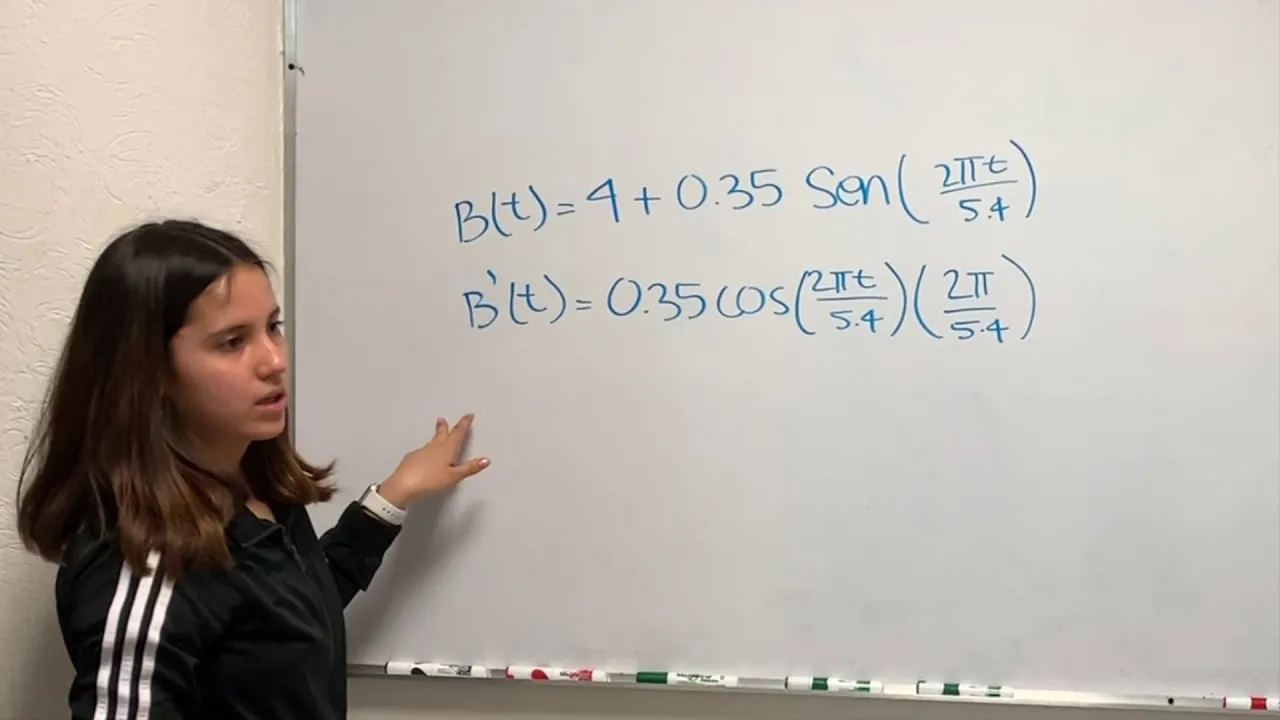 B(t) = 4 + 0.35 Sen(2πt/5.4)
B'(t) = 0.35 cos(2πt/5.4)(2π/5.4)